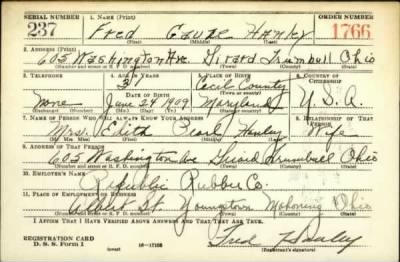 SERIAL NUMBER 1. NAME (Print) ORDER NUMBER
237 Fred Hanley 1766
(First) (Middle) (Last)
2. ADDRESS (Print)
603 Washington Ave Girard Trumbull Ohio
(Number and street or R. F. D. number) (Town) (County) (State)
3. TELEPHONE 4. AGE IN YEARS 5. PLACE OF BIRTH 6. COUNTRY OF CITIZENSHIP
31 Cecil County
DATE OF BIRTH
None June 24 1909 Maryland U.S.A.
7. NAME OF PERSON WHO WILL ALWAYS KNOW YOUR ADDRESS 8. RELATIONSHIP OF THAT PERSON
Mrs. Edith Pearl Hanley Wife
(Mr., Mrs., Miss) (First) (Middle) (Last)
9. ADDRESS OF THAT PERSON
603 Washington Ave Girard Trumbull Ohio
(Number and street or R. F. D. number) (Town) (County) (State)
10. EMPLOYER'S NAME
Republic Rubber Co.
11. PLACE OF EMPLOYMENT OR BUSINESS
Albert St. Youngstown Mahoning Ohio
(Number and street or R. F. D. number) (Town) (County) (State)
I AFFIRM THAT I HAVE VERIFIED ABOVE ANSWERS AND THAT THEY ARE TRUE.
REGISTRATION CARD
D. S. S. Form 1 16—17105 Fred Hanley
(Registrant's signature)